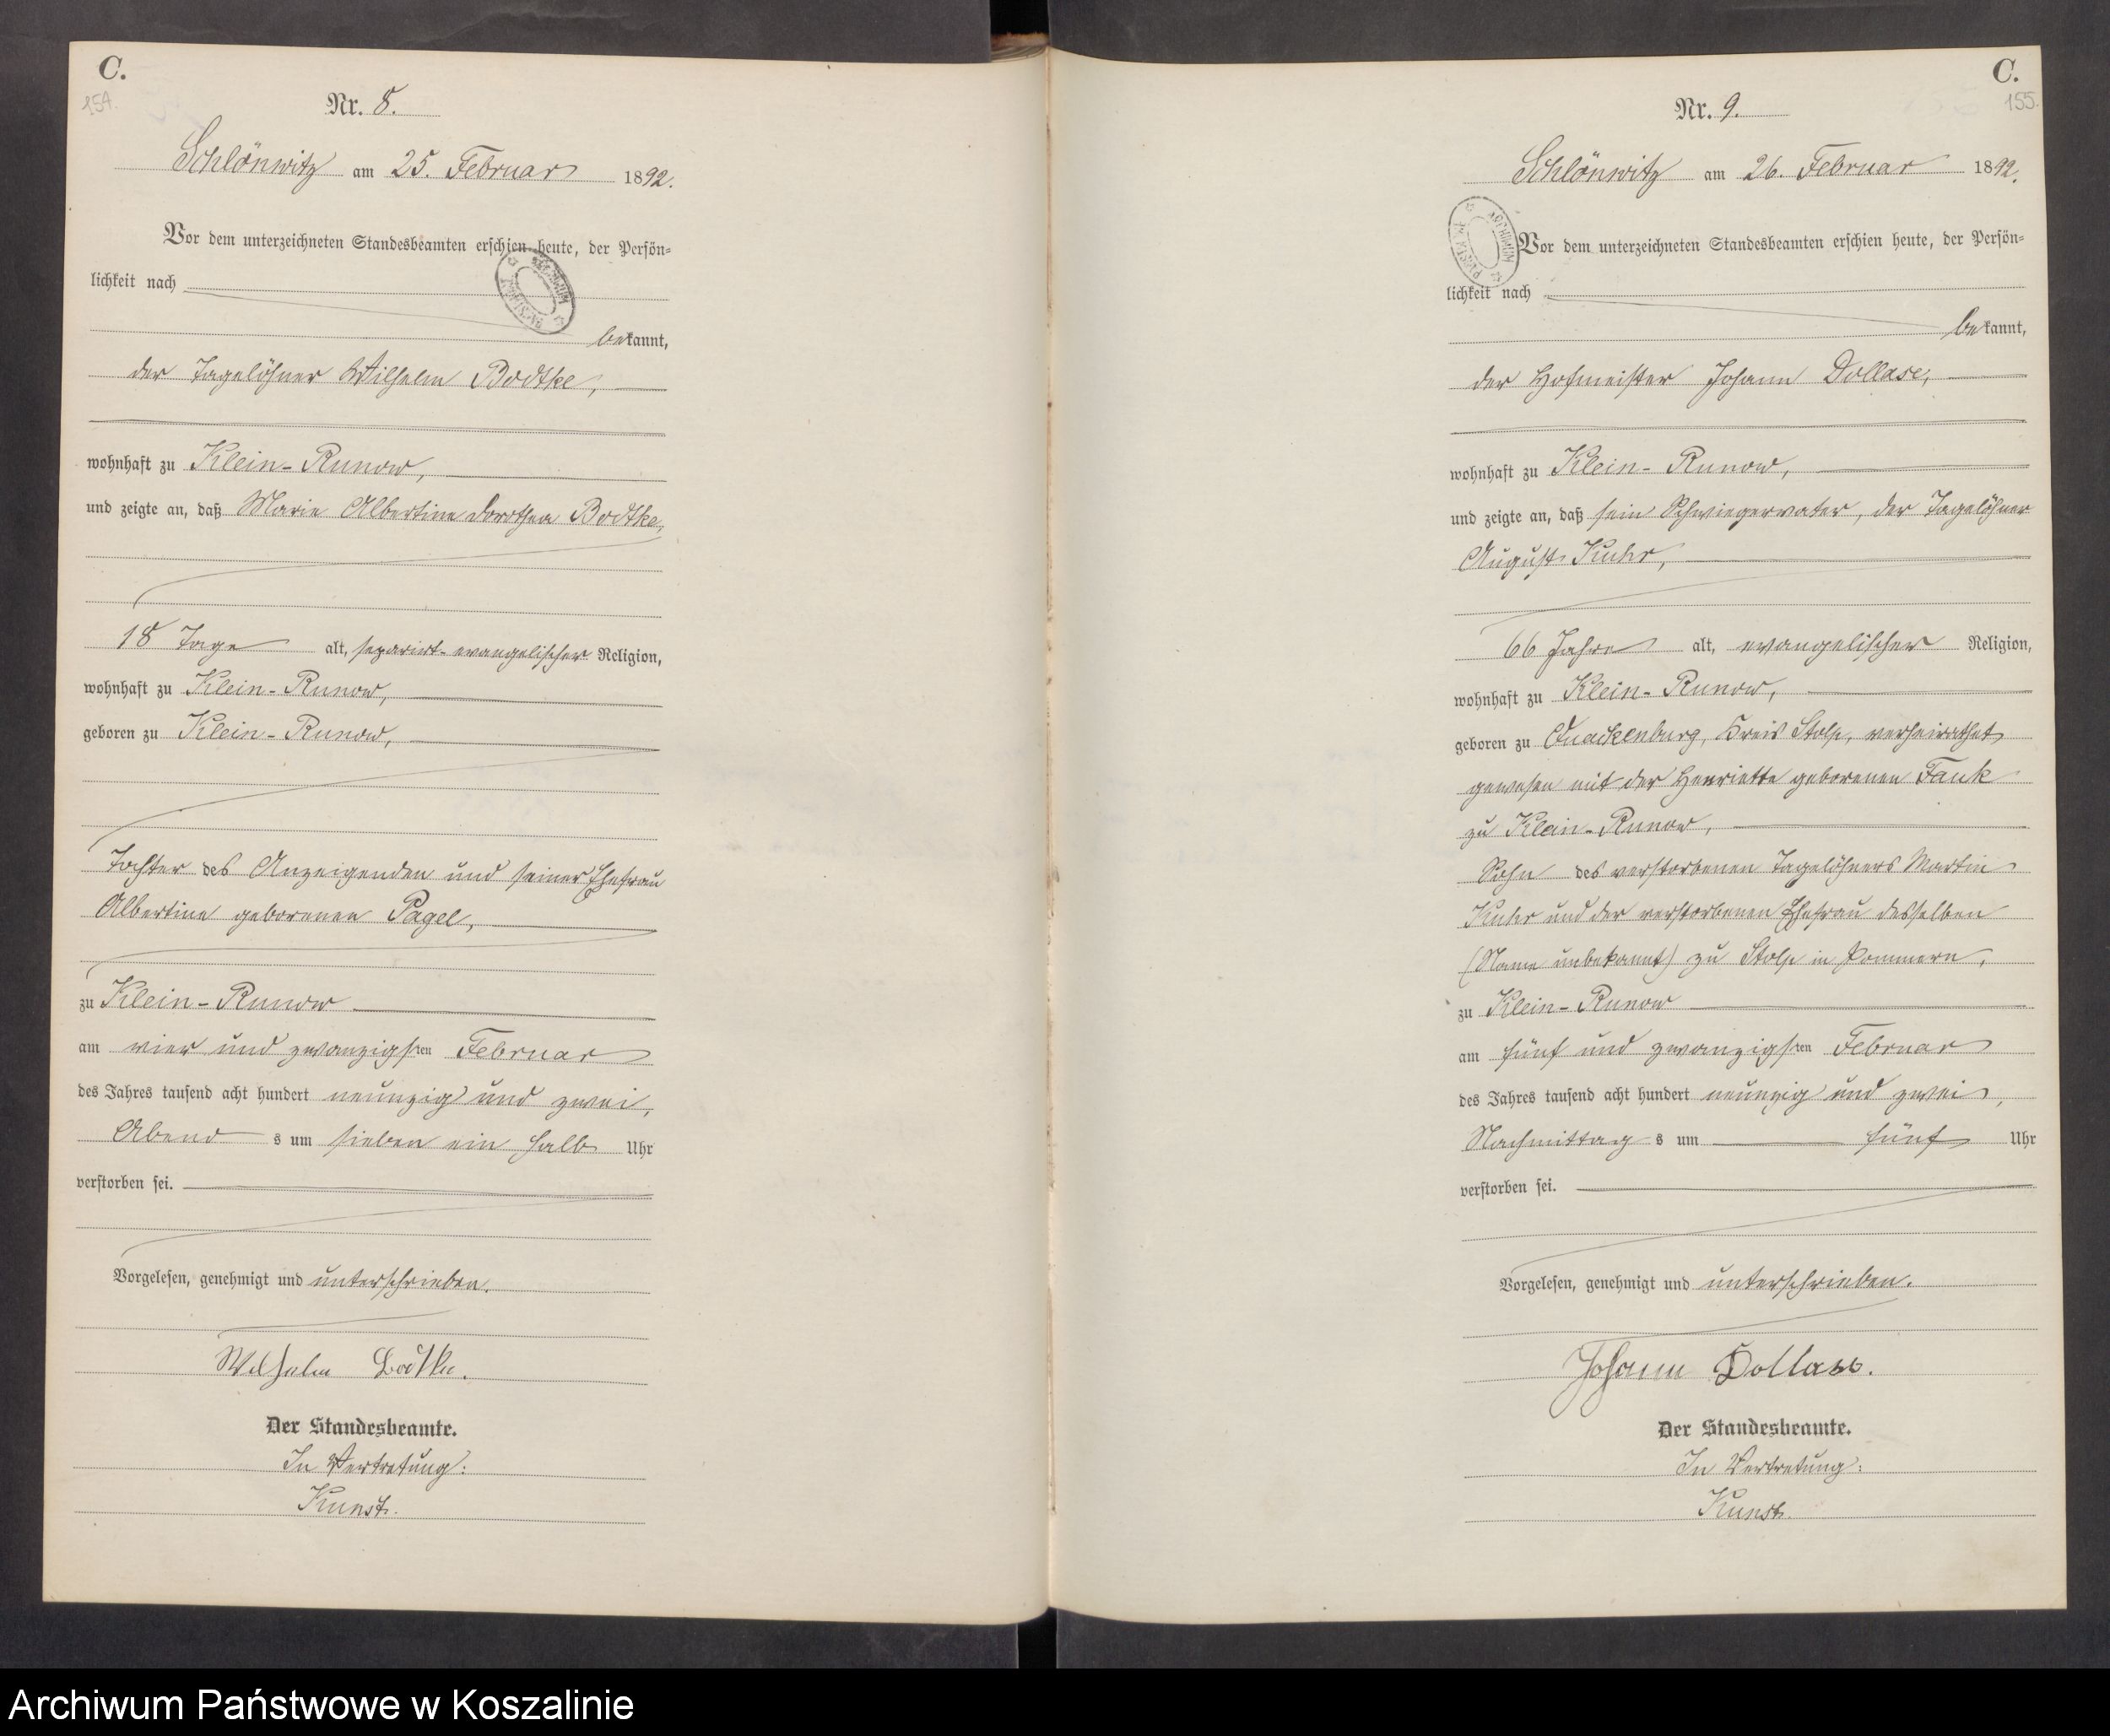 C.
154.
Nr. 8.
Schlönwitz am 25. Februar 1892.
Vor dem unterzeichneten Standesbeamten erschien heute, der Persön-
lichkeit nach
bekannt,
der Tagelöhner Wilhelm Bodtke,
wohnhaft zu Klein-Runow,
und zeigte an, daß Marie Albertine Dorothea Bodtke,
18 Tage alt, separirt-evangelischer Religion,
wohnhaft zu Klein-Runow,
geboren zu Klein-Runow,
Tochter des Anzeigenden und seiner Ehefrau
Albertine geborenen Pagel,
zu Klein-Runow
am vier und zwanzigsten Februar
des Jahres tausend acht hundert neunzig und zwei,
Abends um sieben ein halb Uhr
verstorben sei.
Vorgelesen, genehmigt und unterschrieben.
Wilhelm Bodtke.
Der Standesbeamte.
In Vertretung:
Kunst.
C.
155.
Nr. 9.
Schlönwitz am 26. Februar 1892.
Vor dem unterzeichneten Standesbeamten erschien heute, der Persön-
lichkeit nach
bekannt,
der Hofmeister Johann Dollase,
wohnhaft zu Klein-Runow,
und zeigte an, daß sein Schwiegervater, der Tagelöhner
August Kuhr,
66 Jahre alt, evangelischer Religion,
wohnhaft zu Klein-Runow,
geboren zu Quackenburg, Kreis Stolp, verheirathet
gewesen mit der Henriette geborenen Fank
zu Klein-Runow,
Sohn des verstorbenen Tagelöhners Martin
Kuhr und der verstorbenen Ehefrau desselben
(Name unbekannt) zu Stolp in Pommern,
zu Klein-Runow
am fünf und zwanzigsten Februar
des Jahres tausend acht hundert neunzig und zwei,
Nachmittags um fünf Uhr
verstorben sei.
Vorgelesen, genehmigt und unterschrieben.
Johann Dollase.
Der Standesbeamte.
In Vertretung:
Kunst.
Archiwum Państwowe w Koszalinie